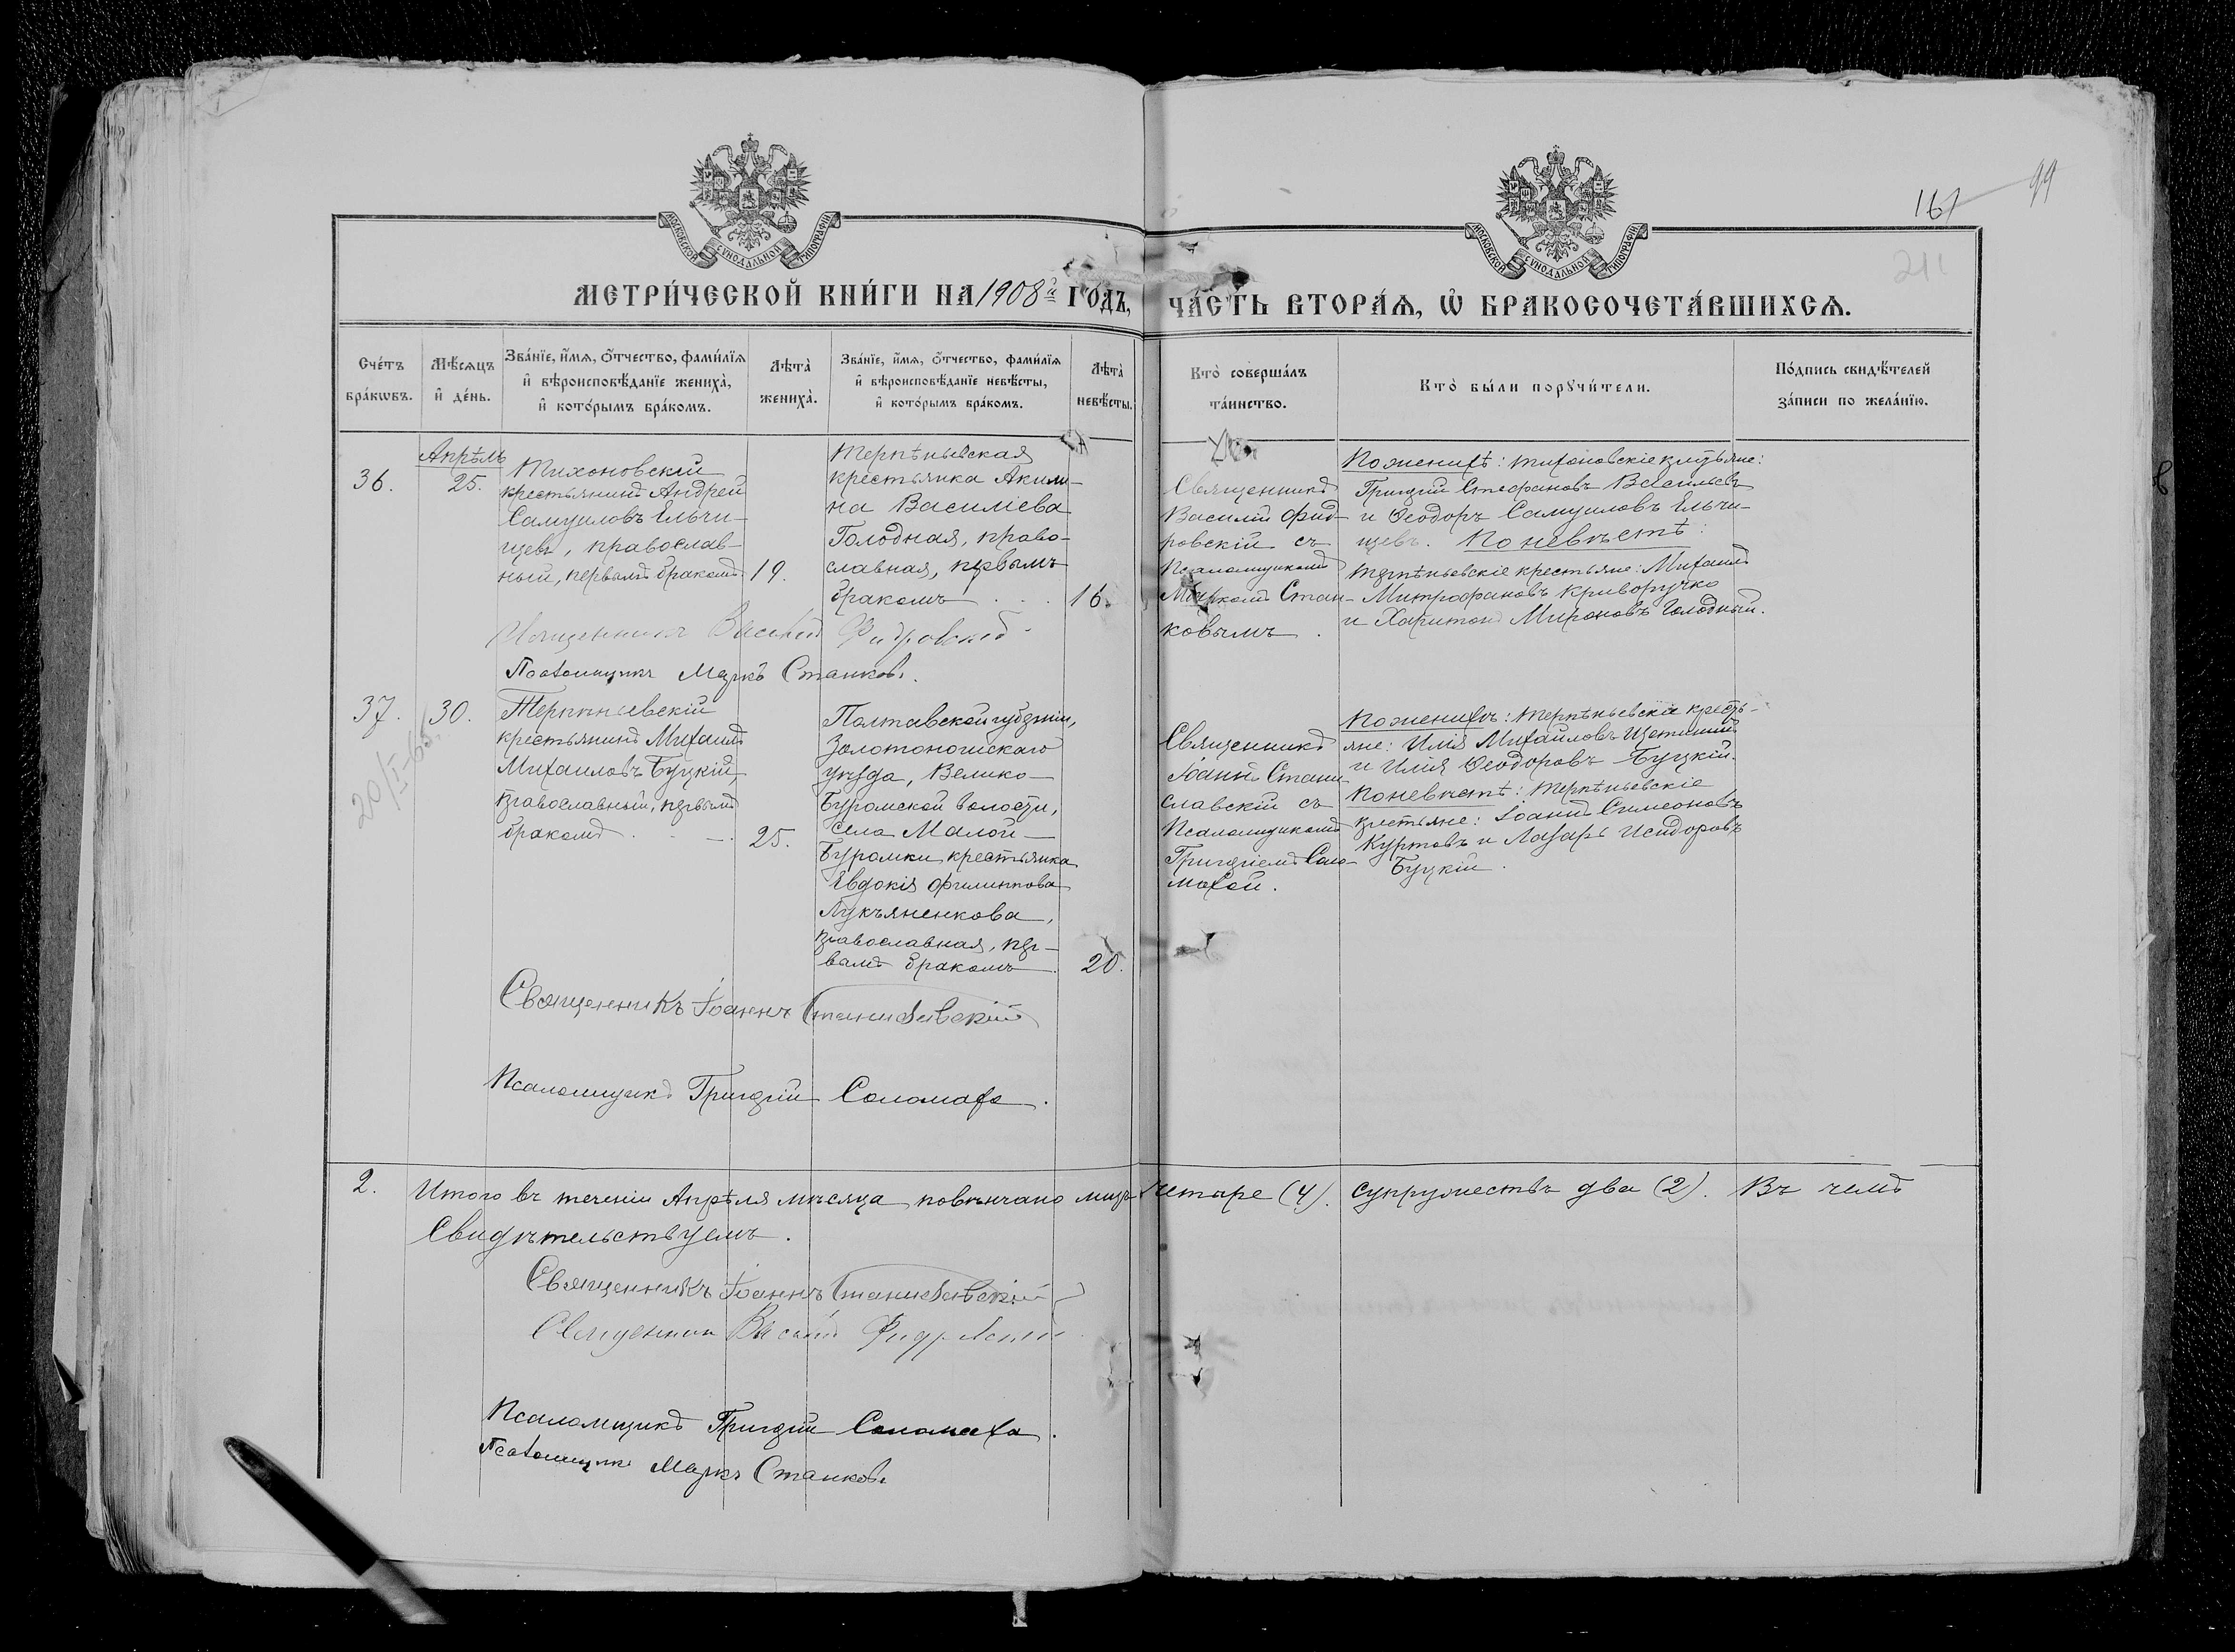 МОСКОВСКОЙ СѴНОДАЛЬНОЙ ТИПОГРАФІИ
МОСКОВСКОЙ СѴНОДАЛЬНОЙ ТИПОГРАФІИ
161 99
211
МЕТРИ́ЧЕСКОЙ КНИ́ГИ НА 1908й ГО́ДЪ, ЧА́СТЬ ВТОРА́Ѧ, Ѡ҆ БРАКОСОЧЕТА́ВШИХСѦ.
Сче́тъ бра́кѡвъ.
Мѣ́сяцъ и҆ де́нь.
Зва́нїе, и҆́мѧ, ѻ҆́тчество, фами́лїѧ
и҆ вѣроисповѣ́данїе жениха̀,
и҆ кото́рымъ бра́комъ.
Лѣта̀ жениха̀.
Зва́нїе, и҆́мѧ, ѻ҆́тчество, фами́лїѧ
и҆ вѣроисповѣ́данїе невѣ́сты,
и҆ кото́рымъ бра́комъ.
Лѣта̀ невѣ́сты.
Кто̀ соверша́лъ
та́инство.
Кто̀ бы́ли порꙋчи́тели.
По́дпись свидѣ́телей
за́писи по жела́нїю.
36.
Апрѣль
25.
Тихоновскій
крестьянинъ Андрей
Самуиловъ Ельчи-
щевъ, православ-
ный, первымъ бракомъ
19.
Терпѣньевская
крестьянка Акили-
на Василіева
Голодная, право-
славная, первымъ
бракомъ . . .
16.
Священникъ
Василій Фид-
ровскій съ
Псаломщикомъ
Маркомъ Стан-
ковымъ.
По женихѣ: тихоновскіе крестьяне:
Григорій Стефановъ Васильевъ
и Ѳеодоръ Самуиловъ Ельчи-
щевъ. По невѣстѣ:
терпѣньевскіе крестьяне: Михаилъ
Митрофановъ Криворучко
и Харитонъ Мироновъ Голодный.
Священникъ Василій Фидровскій
Псаломщикъ Маркъ Станковъ.
37.
30.
20/I-65.
Терпѣньевскій
крестьянинъ Михаилъ
Михаиловъ Буцкій,
православный, первымъ
бракомъ . . .
25.
Полтавской губерніи,
Золотоношскаго
уѣзда, Велико-
Буромской волости,
села Малой-
Буромки крестьянка
Евдокія Филиппова
Лукъяненкова,
православная, пер-
вымъ бракомъ.
20.
Священникъ
Іоаннъ Стани-
славскій съ
Псаломщикомъ
Григоріемъ Соло-
махой.
По женихѣ: терпѣньевскіе кресть-
яне: Илія Михаиловъ Щетинин
и Илія Ѳеодоровъ Буцкій.
По невѣстѣ: терпѣньевскіе
крестьяне: Іоаннъ Симеоновъ
Куртовъ и Лазарь Исидоровъ
Буцкій.
Священникъ Іоаннъ Станиславскій
Псаломщикъ Григорій Соломаха.
2. Итого въ теченіи Апрѣля мѣсяца повѣнчано лицъ четыре (4). супружествъ два (2). Въ чемъ
Свидѣтельствуемъ.
Священникъ Іоаннъ Станиславскій
Священникъ Василій Фидровскій
Псаломщикъ Григорій Соломаха.
Псаломщикъ Маркъ Станковъ